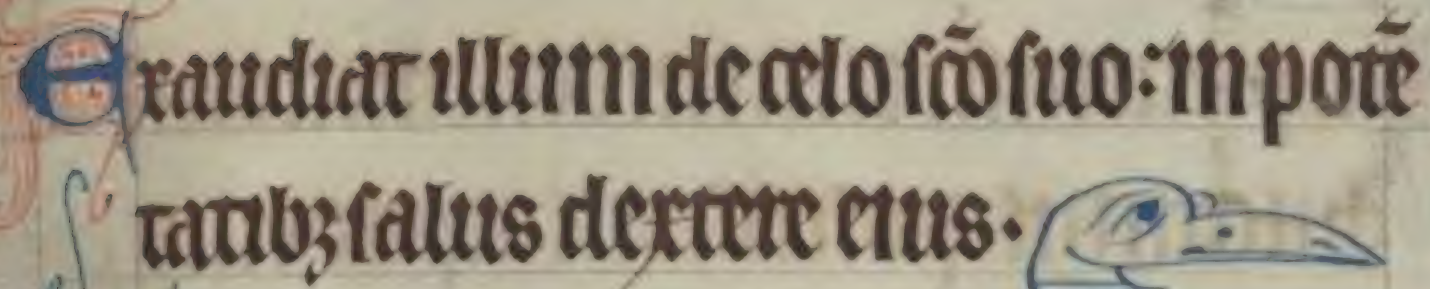 Exaudiat illum de celo sc̄o suo: in potē
tatibꝫ salus dextere eius.